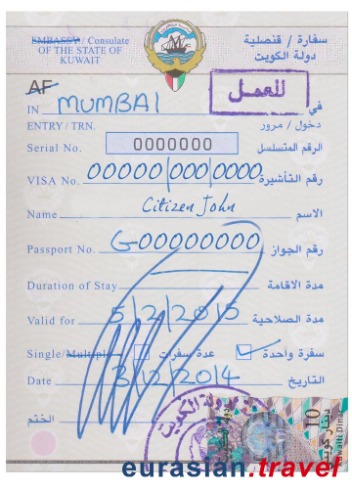 EMBASSY / Consulate سفارة / قنصلية
OF THE STATE OF دولة الكويت
KUWAIT
AF للعمل
IN MUMBAI في
ENTRY / TRN. دخول / مرور
Serial No. 0000000 الرقم المتسلسل
VISA No. 00000/000/0000 رقم التأشيرة
Name Citizen John الاسم
Passport No. G00000000 رقم الجواز
Duration of Stay مدة الاقامة
Valid for 5/2/2015 مدة الصلاحية
Single/Multiple عدة سفرات سفرة واحدة
Date 3/12/2014 التاريخ
الختم
دولة الكويت
10
دينار كويتي
Kuwaiti Dinar
eurasian.travel